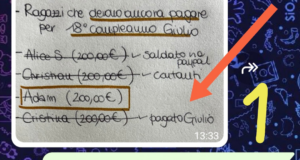 - Ragazzi che devono ancora pagare
per 18° compleanno Giulio
- Alice S (200,00€) - saldato no paypal
- Christian (200,00€) - contanti
- Adam (200,00€)
- Cristina (200,00€) - pagato Giulio
13:33
1